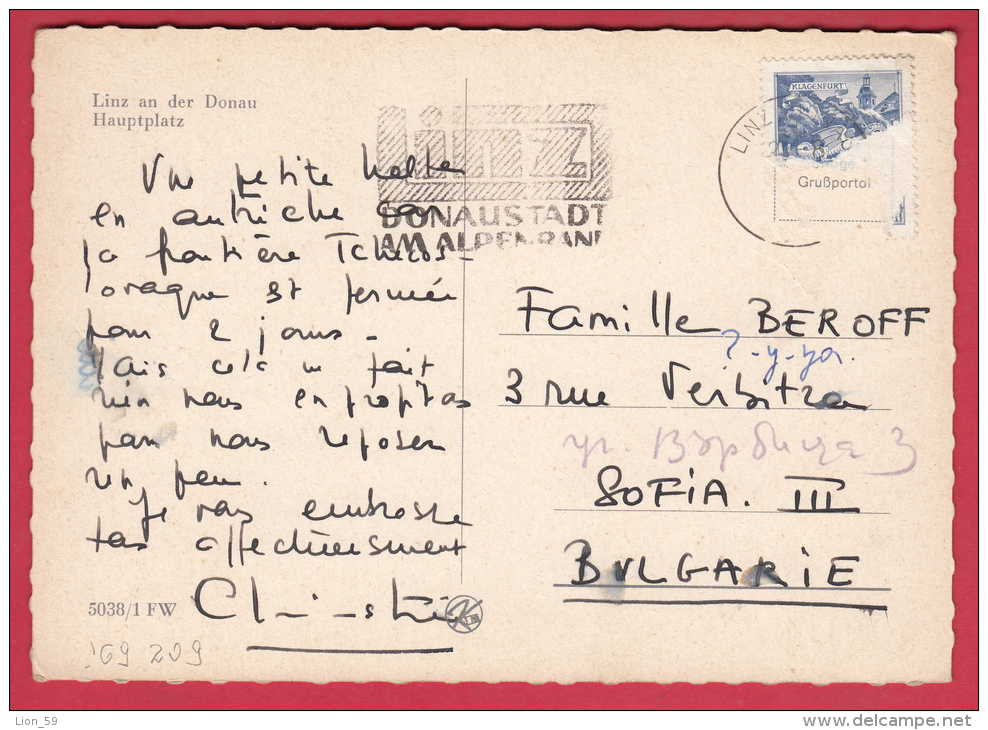 Linz an der Donau
Hauptplatz
Linz
DONAUSTADT
AM ALPENRAN
LINZ
KLAGENFURT
Grußportal
Une petite halte
en autriche car
la frontière Tchécos-
lovaque est fermée
pour 2 jours -
Mais cela ne fait
rien nous en profitons
pour nous reposer
un peu.
Je vous embrasse
tous affectueusement
Christi
Famille BEROFF
3 rue Verbitza
ул. Върбица 3
SOFIA. III
BULGARIE
5038/1 FW
169 209
Lion_59
www.delcampe.net